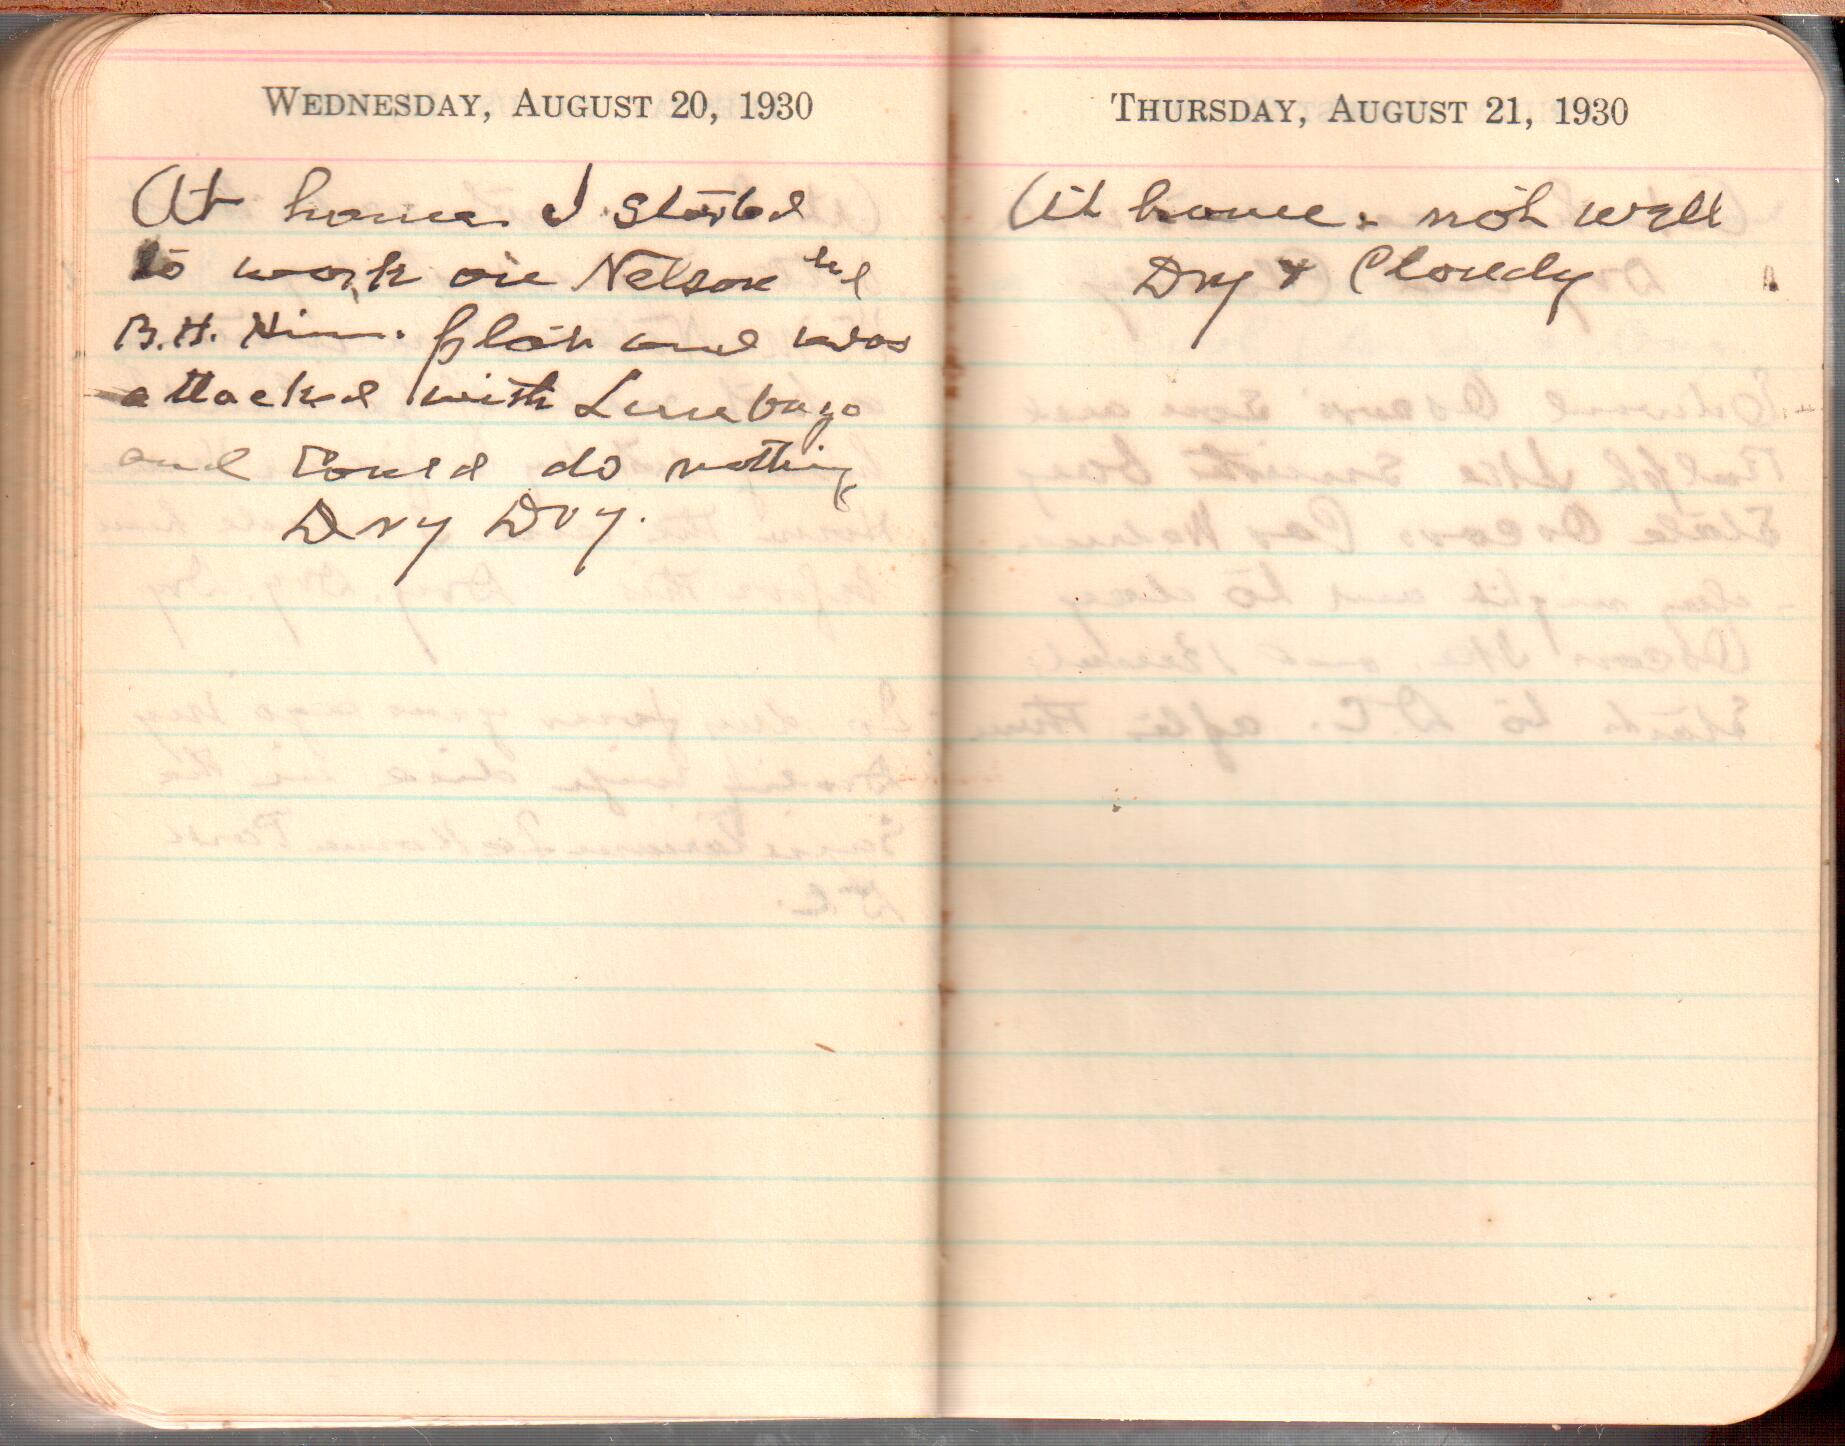 WEDNESDAY, AUGUST 20, 1930
At home. I started
to work on Nelson
B.H. plat and was
attacked with Lumbago
and could do nothing
Dry Dry.
THURSDAY, AUGUST 21, 1930
At home. not well
Dry & Cloudy